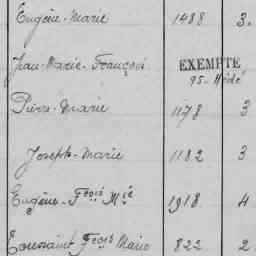 Eugène-Marie 1488 3.
Jean-Marie-François EXEMPTÉ
95-Hédé
Pierre-Marie 1178 3
Joseph-Marie 1182 3
Eugène-Fçois Mie 1918 4
Toussaint Fçois Marie 822 2